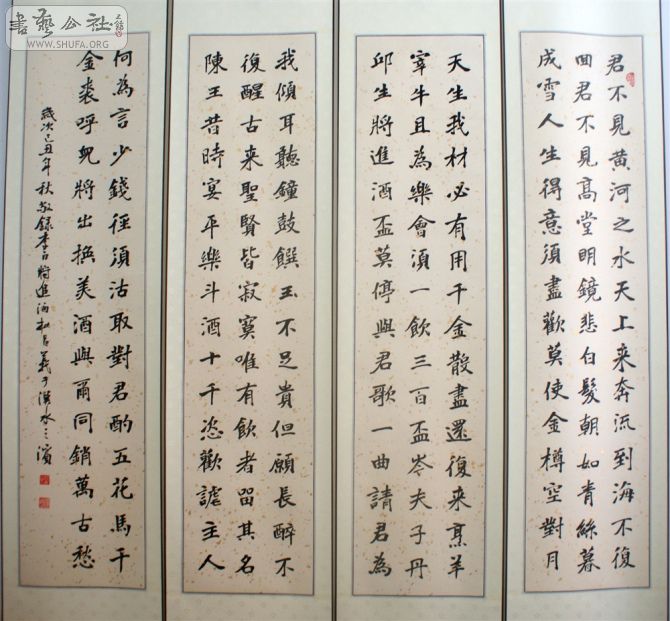 書藝公社
WWW.SHUFA.ORG
君不見黃河之水天上来奔流到海不復
回君不見高堂明鏡悲白髮朝如青絲暮
成雪人生得意須盡歡莫使金樽空對月
天生我材必有用千金散盡還復来烹羊
宰牛且為樂會須一飲三百盃岑夫子丹
邱生將進酒盃莫停與君歌一曲請君為
我傾耳聽鐘鼓饌玉不足貴但願長醉不
復醒古来聖賢皆寂寞唯有飲者留其名
陳王昔時宴平樂斗酒十千恣歡謔主人
何為言少錢徑須沽取對君酌五花馬千
金裘呼兒將出換美酒與爾同銷萬古愁
歲次己丑年秋敬録李白將進酒於漢水之濱